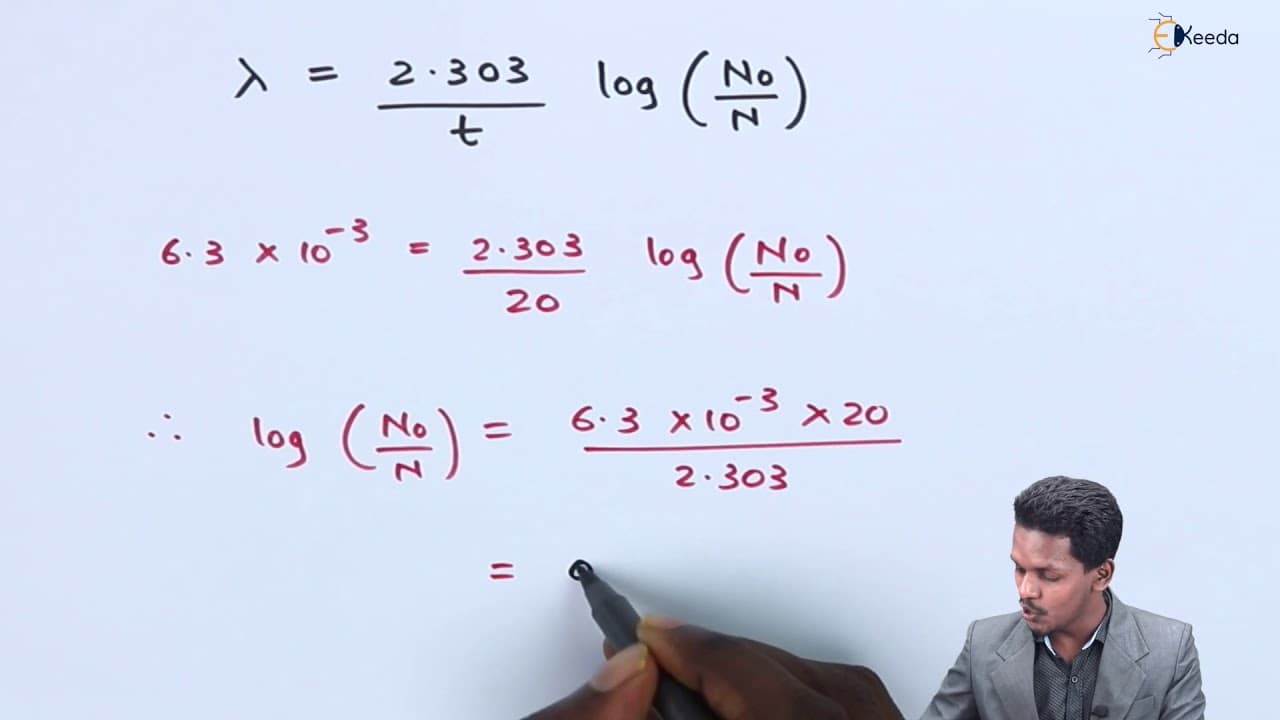 EKeeda
λ = 2.303 / t log (No / N)
6.3 × 10⁻³ = 2.303 / 20 log (No / N)
∴ log (No / N) = 6.3 × 10⁻³ × 20 / 2.303
= 0